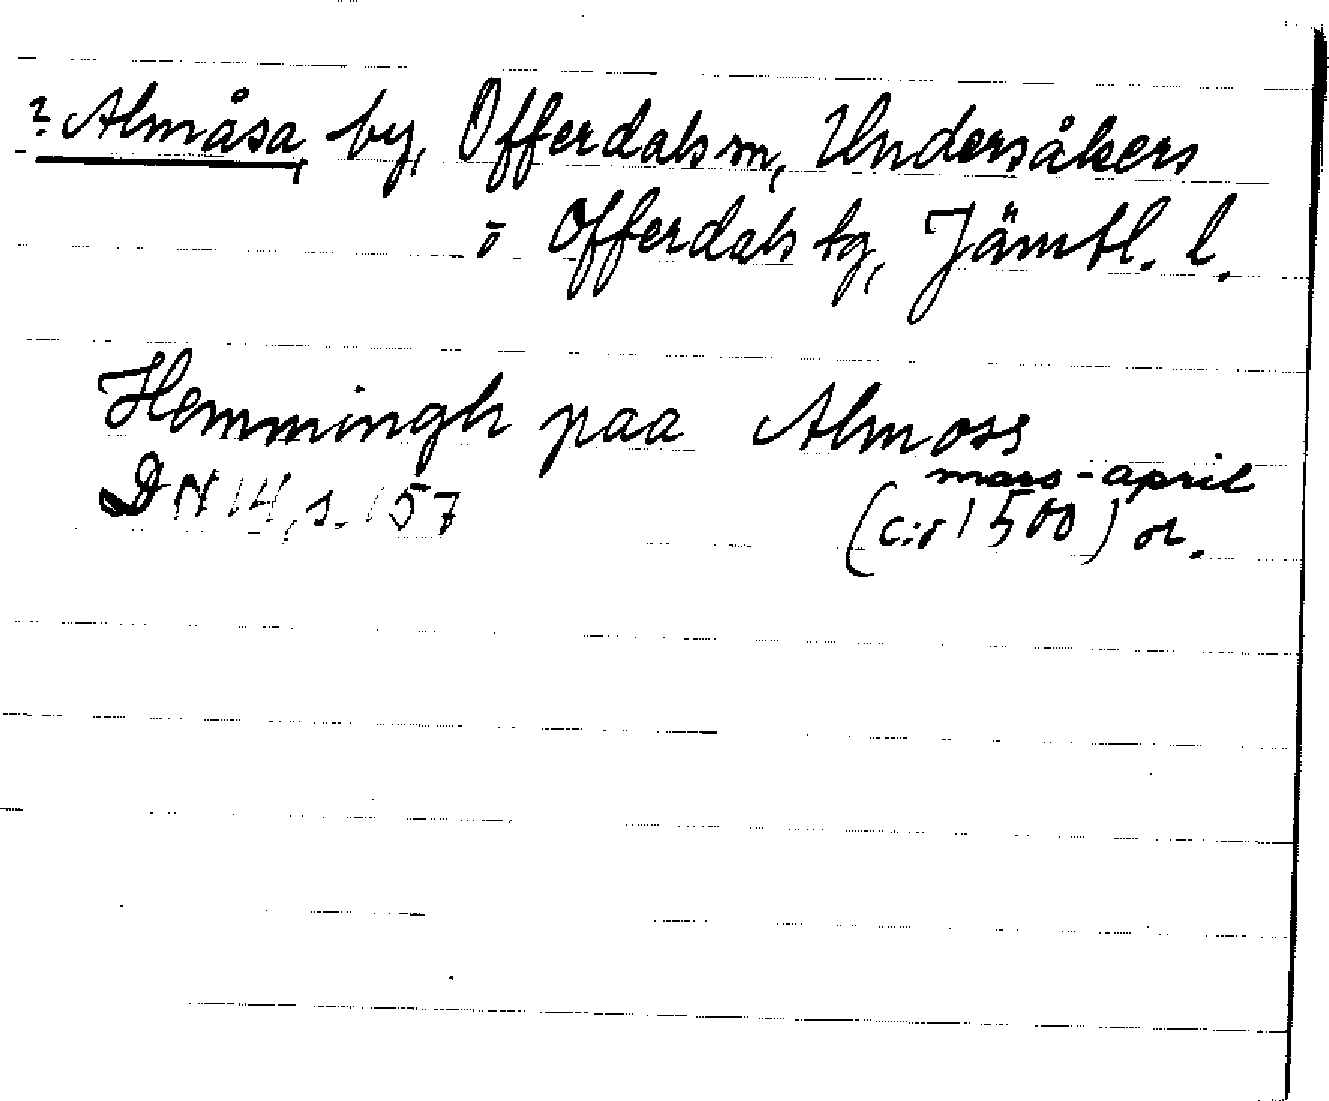 ? Almåsa, by, Offerdals sn, Undersåkers
o Offerdals tg, Jämtl. l.
Hemmingh paa Almoss
mars-april
DN 14, s. 157 (c:a 1500) or.